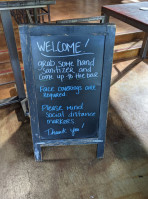 WELCOME!
grab some hand
sanitizer and
come up to the bar
Face coverings are
required
Please mind
social distance
markers
Thank you!